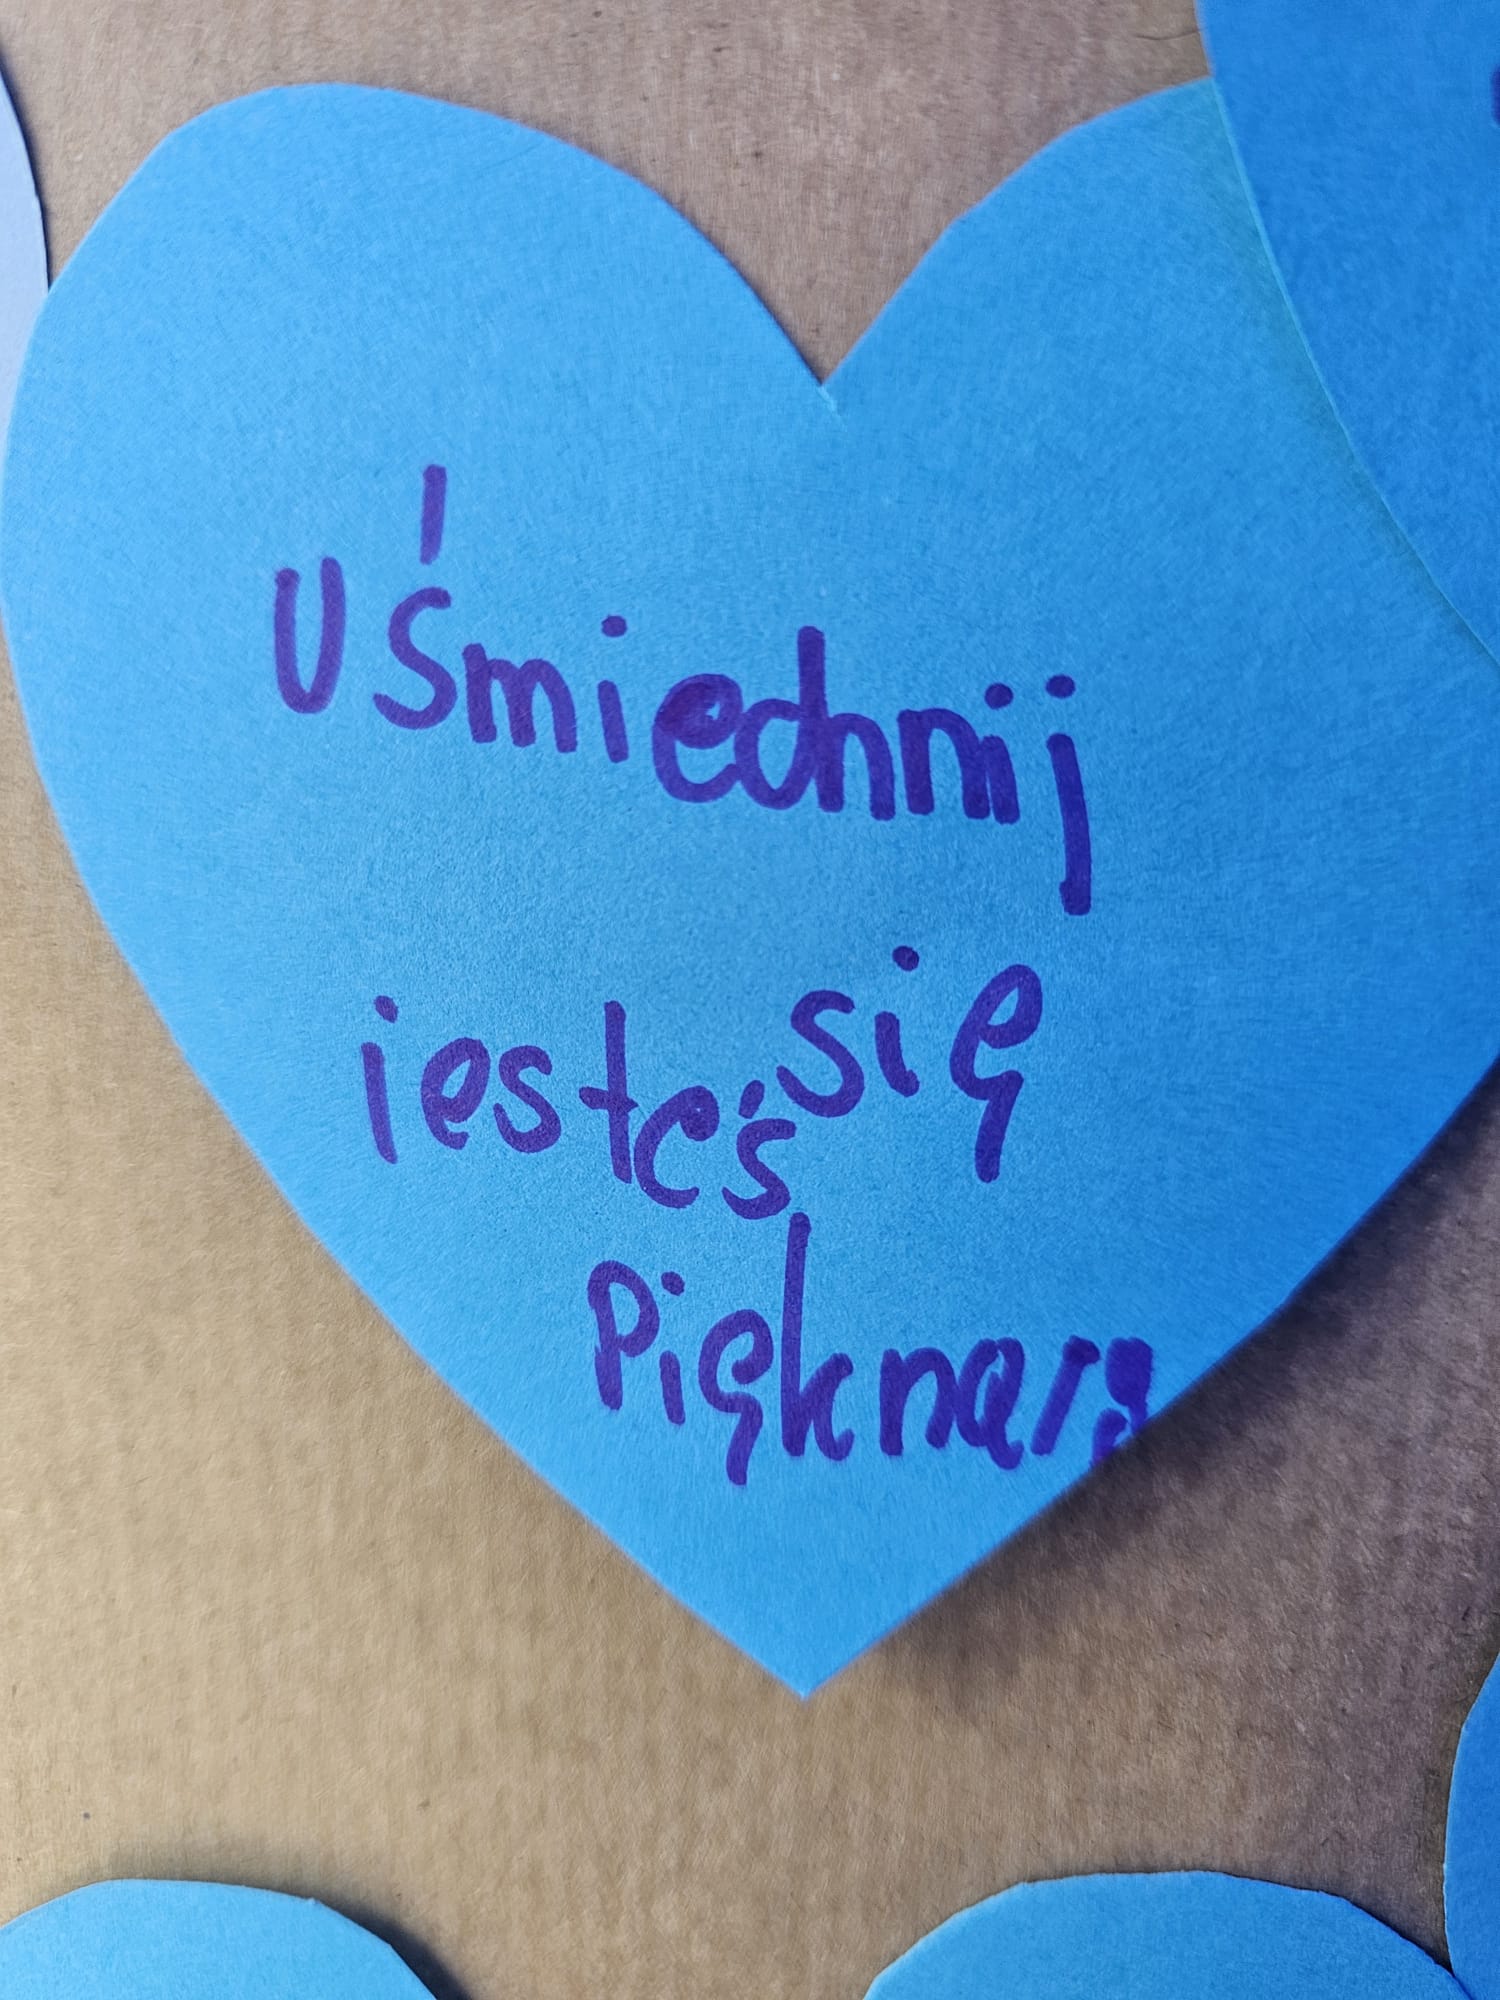 Uśmiechnij
się
jesteś
Piękna/y